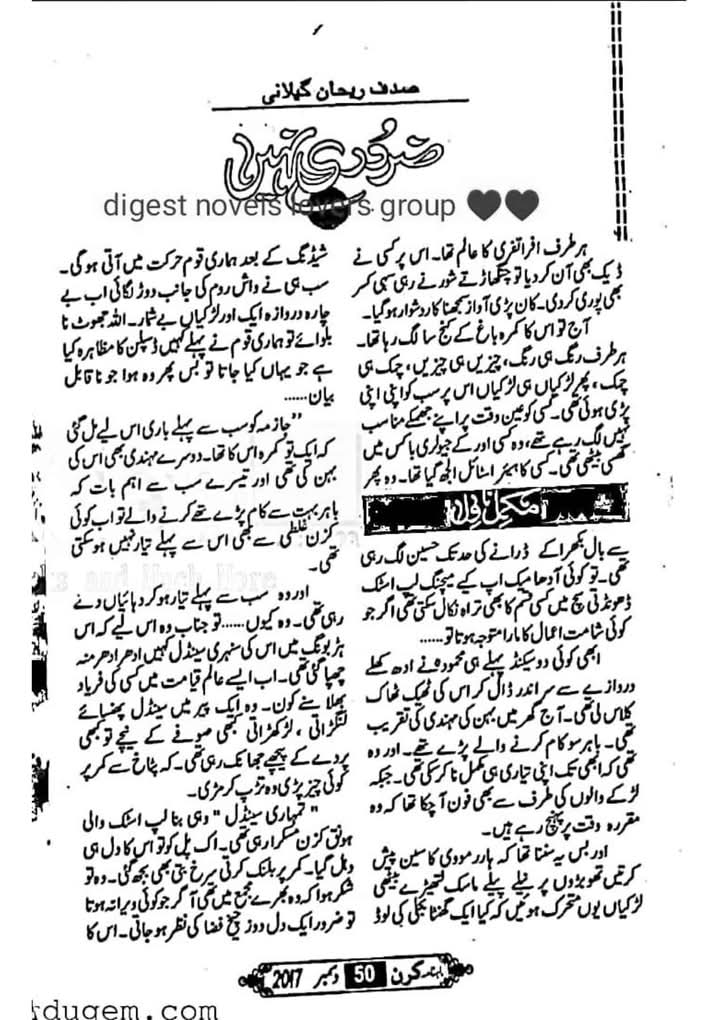 صدف ریحان گیلانی
ضروری نہیں
digest novels lovers group
ہر طرف افراتفری کا عالم تھا۔ اس پر کسی نے
ڈیک بھی آن کر دیا تو چنگھاڑتے شور نے رہی سہی کسر
بھی پوری کردی۔ کان پڑی آواز سمجھنا کار دشوار ہوگیا۔
آج تو اس کا کمرہ باغ کے کنج سا لگ رہا تھا۔
ہر طرف رنگ ہی رنگ، چیزیں ہی چیزیں، چمک ہی
چمک، پھر لڑکیاں ہی لڑکیاں اس پر سب کو اپنی اپنی
پڑی ہوئی تھی۔ کسی کو عین وقت پر اپنے جھمکے مناسب
نہیں لگ رہے تھے، وہ کسی اور کے جیولری باکس میں
گھسی بیٹھی تھی۔ کسی کا ہیئر اسٹائل الجھ گیا تھا۔ وہ پھر
مکمل ناول
سے بال بکھرا کے ڈرانے کی حد تک حسین لگ رہی
تھی۔ تو کوئی آدھا میک اپ کیے میچنگ لپ اسٹک
ڈھونڈتی سچ میں کسی قسم کا بھی تراہ نکال سکتی تھی اگر جو
کوئی شامت اعمال کا مارا متوجہ ہوتا تو......
ابھی کوئی دو سیکنڈ پہلے ہی محمودہ نے ادھ کھلے
دروازے سے سر اندر ڈال کر اس کی ٹھیک ٹھاک
کلاس لی تھی۔ آج گھر میں بہن کی مہندی کی تقریب
تھی۔ باہر سو کام کرنے والے پڑے تھے۔ اور وہ
تھی کہ ابھی تک اپنی تیاری ہی مکمل نا کرسکی تھی۔ جبکہ
لڑکے والوں کی طرف سے بھی فون آچکا تھا کہ وہ
مقررہ وقت پر پہنچ رہے ہیں۔
اور بس یہ سننا تھا کہ ہارر مووی کا سین پیش
کرتیں تھوبڑوں پر نیلے پیلے ماسک لتھیڑے بیٹھی
لڑکیاں یوں متحرک ہوئیں کہ کیا ایک گھنٹا بجلی کی لوڈ
شیڈنگ کے بعد ہماری قوم حرکت میں آتی ہوگی۔
سب ہی نے واش روم کی جانب دوڑ لگائی اب بے
چارہ دروازہ ایک اور لڑکیاں بے شمار۔ اللہ جھوٹ نا
بلوائے تو ہماری قوم نے پہلے کہیں ڈسپلن کا مظاہرہ کیا
ہے جو یہاں کیا جاتا تو بس پھر وہ ہوا جو نا قابل
بیان......
جازمہ کو سب سے پہلے باری اس لیے مل گئی
کہ ایک تو کمرہ اس کا تھا۔ دوسرے مہندی بھی اس کی
بہن کی تھی اور تیسرے سب سے اہم بات کہ
باہر بہت سے کام پڑے تھے کرنے والے تو اب کوئی
کزن غلطی سے بھی اس سے پہلے تیار نہیں ہوسکتی
تھی۔
اور وہ سب سے پہلے تیار ہو کر دہائیاں دے
رہی تھی۔ وہ کیوں...... تو جناب وہ اس لیے کہ اس
ہڑبونگ میں اس کی سنہری سینڈل کہیں ادھر ادھر منہ
چھپا گئی تھی۔ اب ایسے عالم قیامت میں کسی کی فریاد
بھلا سنے کون۔ وہ ایک پیر میں سینڈل پھنسائے
لنگڑاتی، لڑکھڑاتی کبھی صوفے کے نیچے تو کبھی
پردے کے پیچھے جھانک رہی تھی۔ کہ پٹاخ سے کمر پر
کوئی چیز پڑی وہ تڑپ کر مڑی۔
"تمہاری سینڈل" وہی بنا لپ اسٹک والی
ہونق کزن مسکرا رہی تھی۔ اک پل کو تو اس کا دل ہی
دہل گیا۔ کمر پر بلنک کرتی سرخ بتی بھی بجھ گئی۔ وہ تو
شکر ہوا کہ وہ بھرے مجمع میں تھی اگر جو کوئی ویرانہ ہوتا
تو ضرور ایک دل دوز چیخ فضا کی نظر ہوجاتی۔ اس کا
ماہنامہ کرن 50 دسمبر 2017
rdugem.com